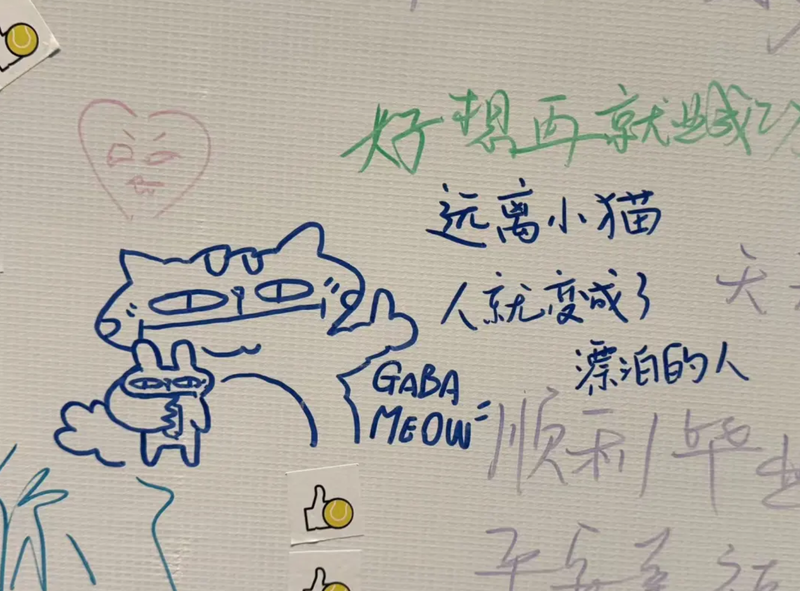 好想再就业成功
远离小猫
人就变成了
漂泊的人
GABA
MEOW
顺利毕业
天
你